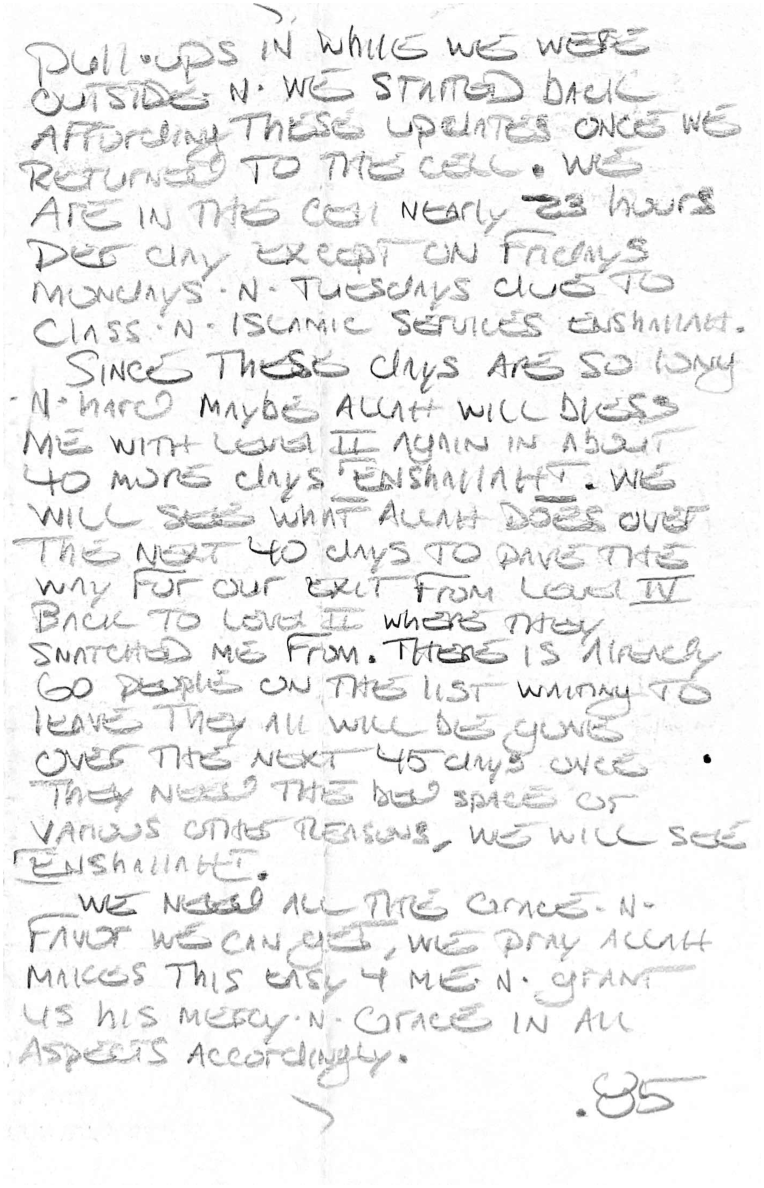 Pull-ups IN while WE WERE
OUTSIDE. N. WE STARTED BACK
AFFORDing THESE UPDATES ONCE WE
RETURNED TO THE CELL. WE
ARE IN THE CEll NEArly 23 hours
PER DAy EXCEPT ON FriDAyS
MONDAyS. N. TUESDAyS DUE TO
CLASS. N. ISLAMIC SERVICES ENSHAllAH.
SINCE THESE DAys ARE SO lONg
. N. hARD MAYbE ALLAH WILL BlESS
ME WITH LEVEl II AgAIN IN AbOUT
40 MORE DAys "ENSHAllAH". WE
WILL SEE WHAT ALLAH DOES OVER
THE NEXT 40 DAyS TO PAVE THE
WAy FOR OUR EXIT FROM LEVEl IV
BACK TO LEVEl II whERE THEY
SNATCHED ME FROM. THERE IS AlREADy
60 PEOPlE ON THE lIST WAITINg TO
lEAVE THEy All WILL BE gONE
OVER THE NEXT 45 DAys ONCE
THEy NEED THE bED SPACE OR
VARIOUS OTHER REASONS, WE WILL SEE
"ENSHAllAH".
WE NEED ALL THE GRACE. N.
FAVOR WE CAN gET, WE PRAy ALLAH
MAKES THIS EASy 4 ME. N. gRANT
US hIS MERCy. N. GRACE IN All
ASPECTS ACCORDINgly.
.85